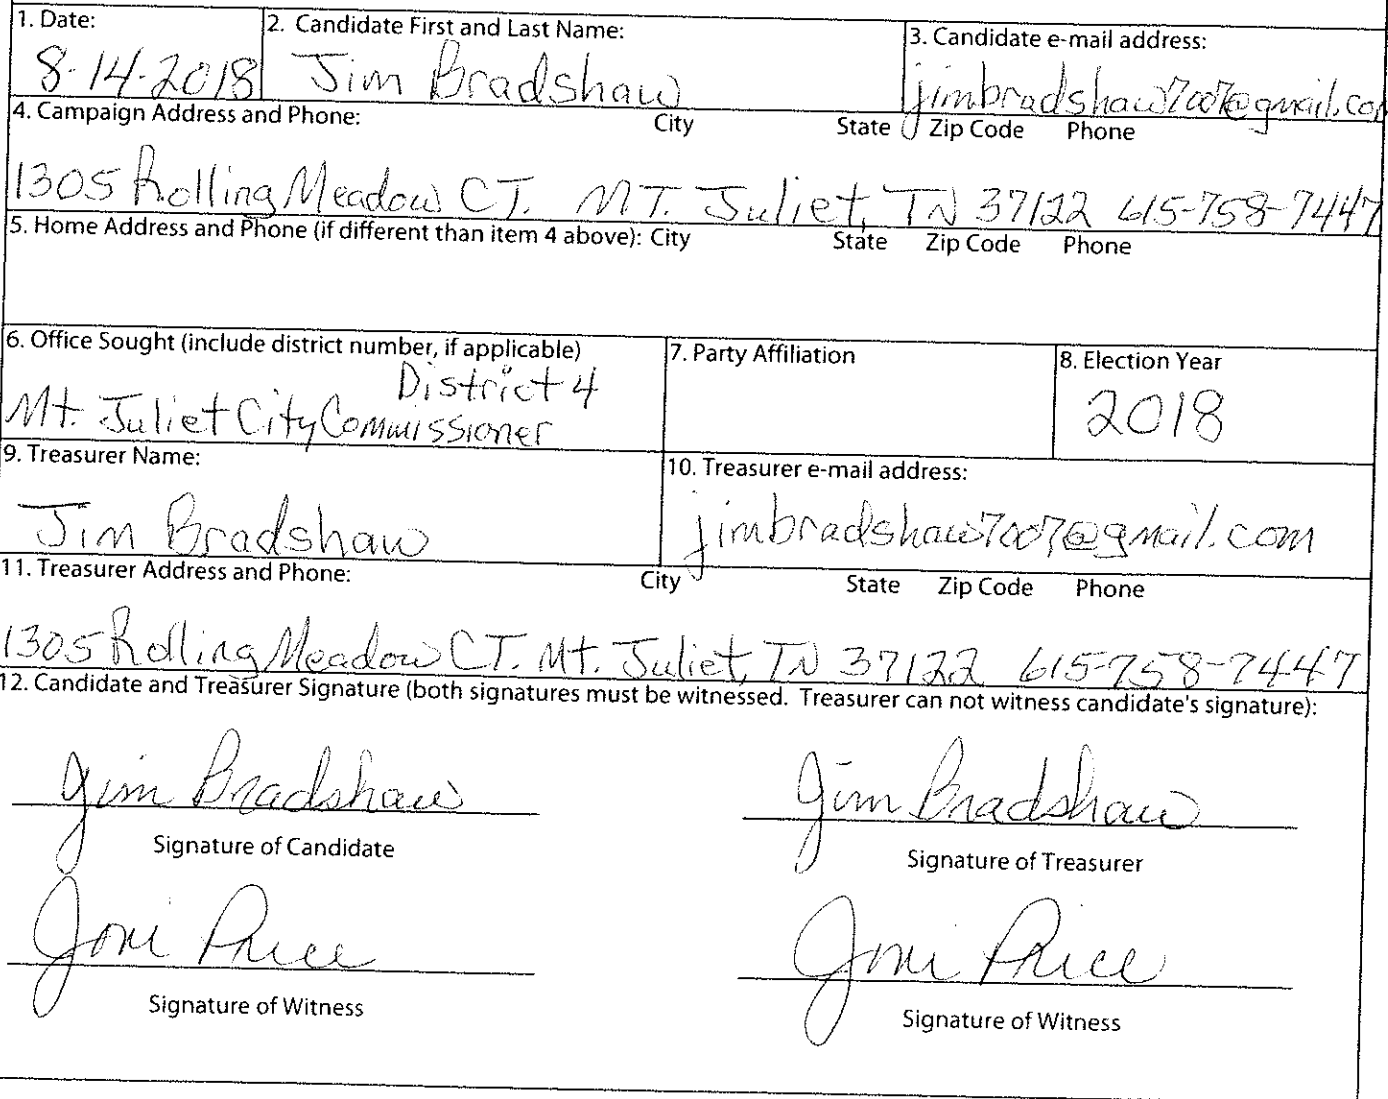 1. Date: 2. Candidate First and Last Name: 3. Candidate e-mail address:
8-14-2018 Jim Bradshaw jimbradshaw7007@gmail.co
4. Campaign Address and Phone: City State Zip Code Phone
1305 Rolling Meadow CT. MT. Juliet, TN 37122 615-758-7447
5. Home Address and Phone (if different than item 4 above): City State Zip Code Phone
6. Office Sought (include district number, if applicable) 7. Party Affiliation 8. Election Year
District 4
Mt. Juliet City Commissioner 2018
9. Treasurer Name: 10. Treasurer e-mail address:
Jim Bradshaw jimbradshaw7007@gmail.com
11. Treasurer Address and Phone: City State Zip Code Phone
1305 Rolling Meadow CT. Mt. Juliet, TN 37122 615-758-7447
12. Candidate and Treasurer Signature (both signatures must be witnessed. Treasurer can not witness candidate's signature):
Jim Bradshaw Jim Bradshaw
Signature of Candidate Signature of Treasurer
Joni Price Joni Price
Signature of Witness Signature of Witness